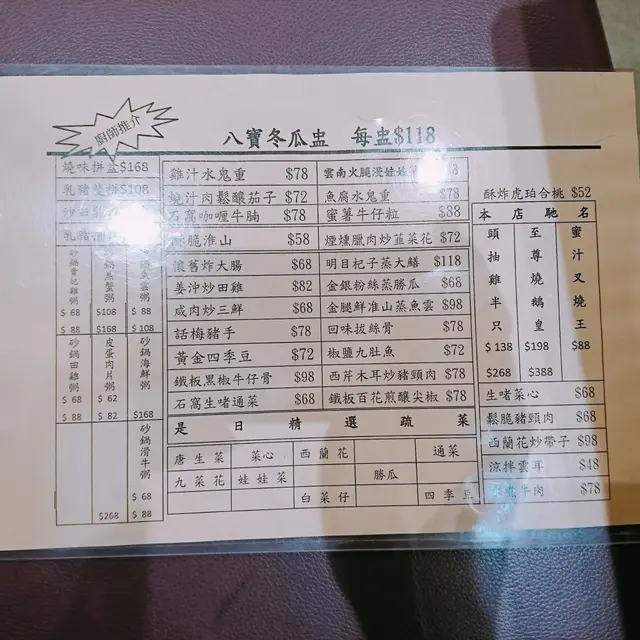 廚師推介
八寶冬瓜盅 每盅$118
燒味拼盆$168
乳豬雙拼$108
雞汁水鬼重 $78
燒汁肉鬆釀茄子 $72
石窩咖喱牛腩 $78
酥脆淮山 $58
懷舊炸大腸 $68
美沖炒田雞 $82
咸肉炒三鮮 $68
話梅豬手 $78
黃金四季豆 $72
鐵板黑椒牛仔骨 $98
石窩生啫通菜 $68
雲南火腿浸娃娃菜
魚腐水鬼重 $78
蜜薯牛仔粒 $88
煙燻臘肉炒韮菜花 $72
明目杞子蒸大鱔 $118
金銀粉絲蒸勝瓜 $68
金腿鮮准山蒸魚雲 $98
回味拔絲骨 $78
椒鹽九肚魚 $72
西芹木耳炒豬頸肉 $78
鐵板百花煎釀尖椒 $78
酥炸虎珀合桃 $52
本店馳名
頭抽雞半隻 $138 $268
至尊燒鵝皇 $198 $388
蜜汁叉燒王 $88
生啫菜心 $68
鬆脆豬頸肉 $68
西蘭花炒帶子 $98
涼拌雲耳 $48
牛肉 $78
$68 $108 $88
$88 $168 $108
砂鍋田雞粥
皮蛋肉片粥
砂鍋海鮮粥
$68 $62
$88 $82 $168
砂鍋滑牛粥
$68
$268 $88
是日精選疏菜
唐生菜 菜心 西蘭花 通菜
九菜花 娃娃菜 勝瓜
白菜仔 四季豆